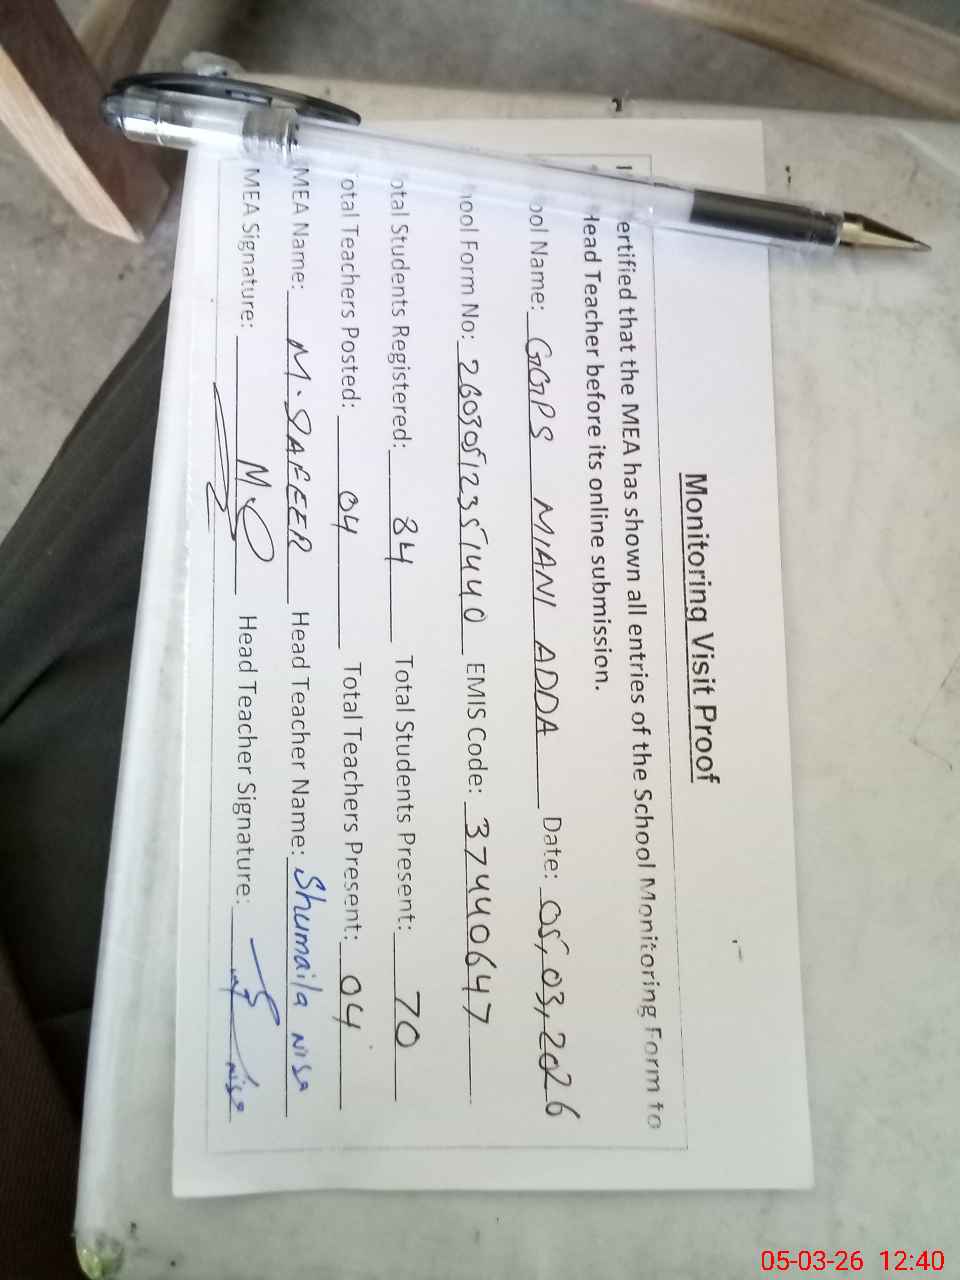 Monitoring Visit Proof
ertified that the MEA has shown all entries of the School Monitoring Form to
Head Teacher before its online submission.
ool Name: GGPS MIANI ADDA Date: 05,03,2026
hool Form No: 26030512351440 EMIS Code: 37440647
otal Students Registered: 84 Total Students Present: 70
otal Teachers Posted: 04 Total Teachers Present: 04
MEA Name: M. SAFEER Head Teacher Name: Shumaila Nisa
MEA Signature: Head Teacher Signature: Nisa
05-03-26 12:40